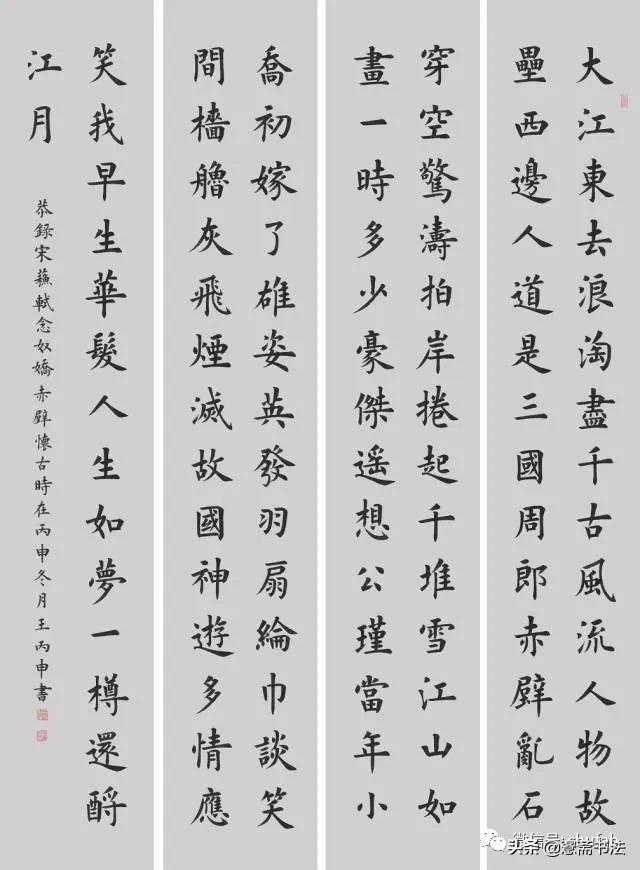 大江東去浪淘盡千古風流人物故
壘西邊人道是三國周郎赤壁亂石
穿空驚濤拍岸捲起千堆雪江山如
畫一時多少豪傑遥想公瑾當年小
喬初嫁了雄姿英發羽扇綸巾談笑
間檣艪灰飛煙滅故國神遊多情應
笑我早生華髮人生如夢一樽還酹
江月
恭録宋蘇軾念奴嬌赤壁懷古時在丙申冬月王丙申書
微信号:
头条@斋书法